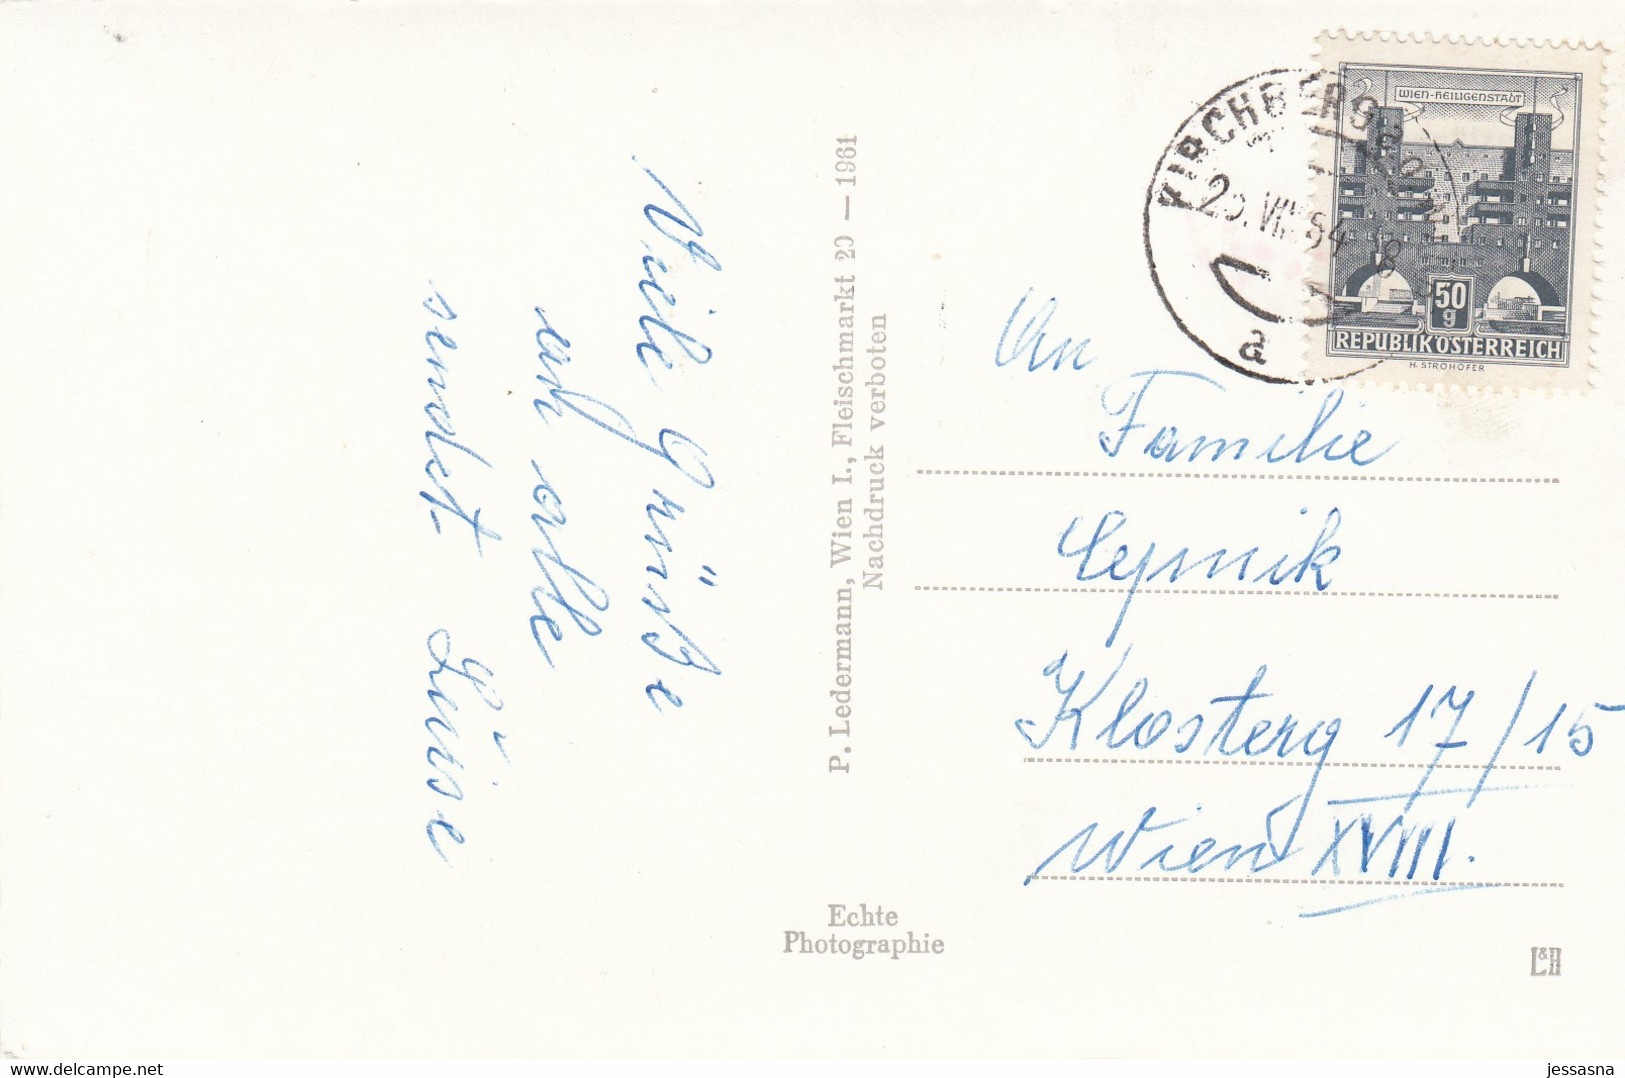 Viele Grüße
auf alle
sendet
Luise
P. Ledermann, Wien I., Fleischmarkt 20 — 1961
Nachdruck verboten
Echte
Photographie
KIRCHBERG
a
WIEN-HEILIGENSTADT
50
g
REPUBLIK ÖSTERREICH
H. STROHOFER
An
Familie
Klosterg 17/15
Wien XVIII.
L&H
delcampe.net
jessasna